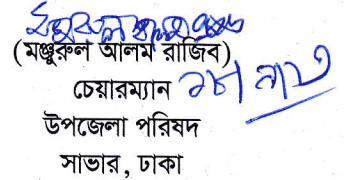 (মঞ্জুরুল আলম রাজিব)
চেয়ারম্যান
উপজেলা পরিষদ
সাভার, ঢাকা